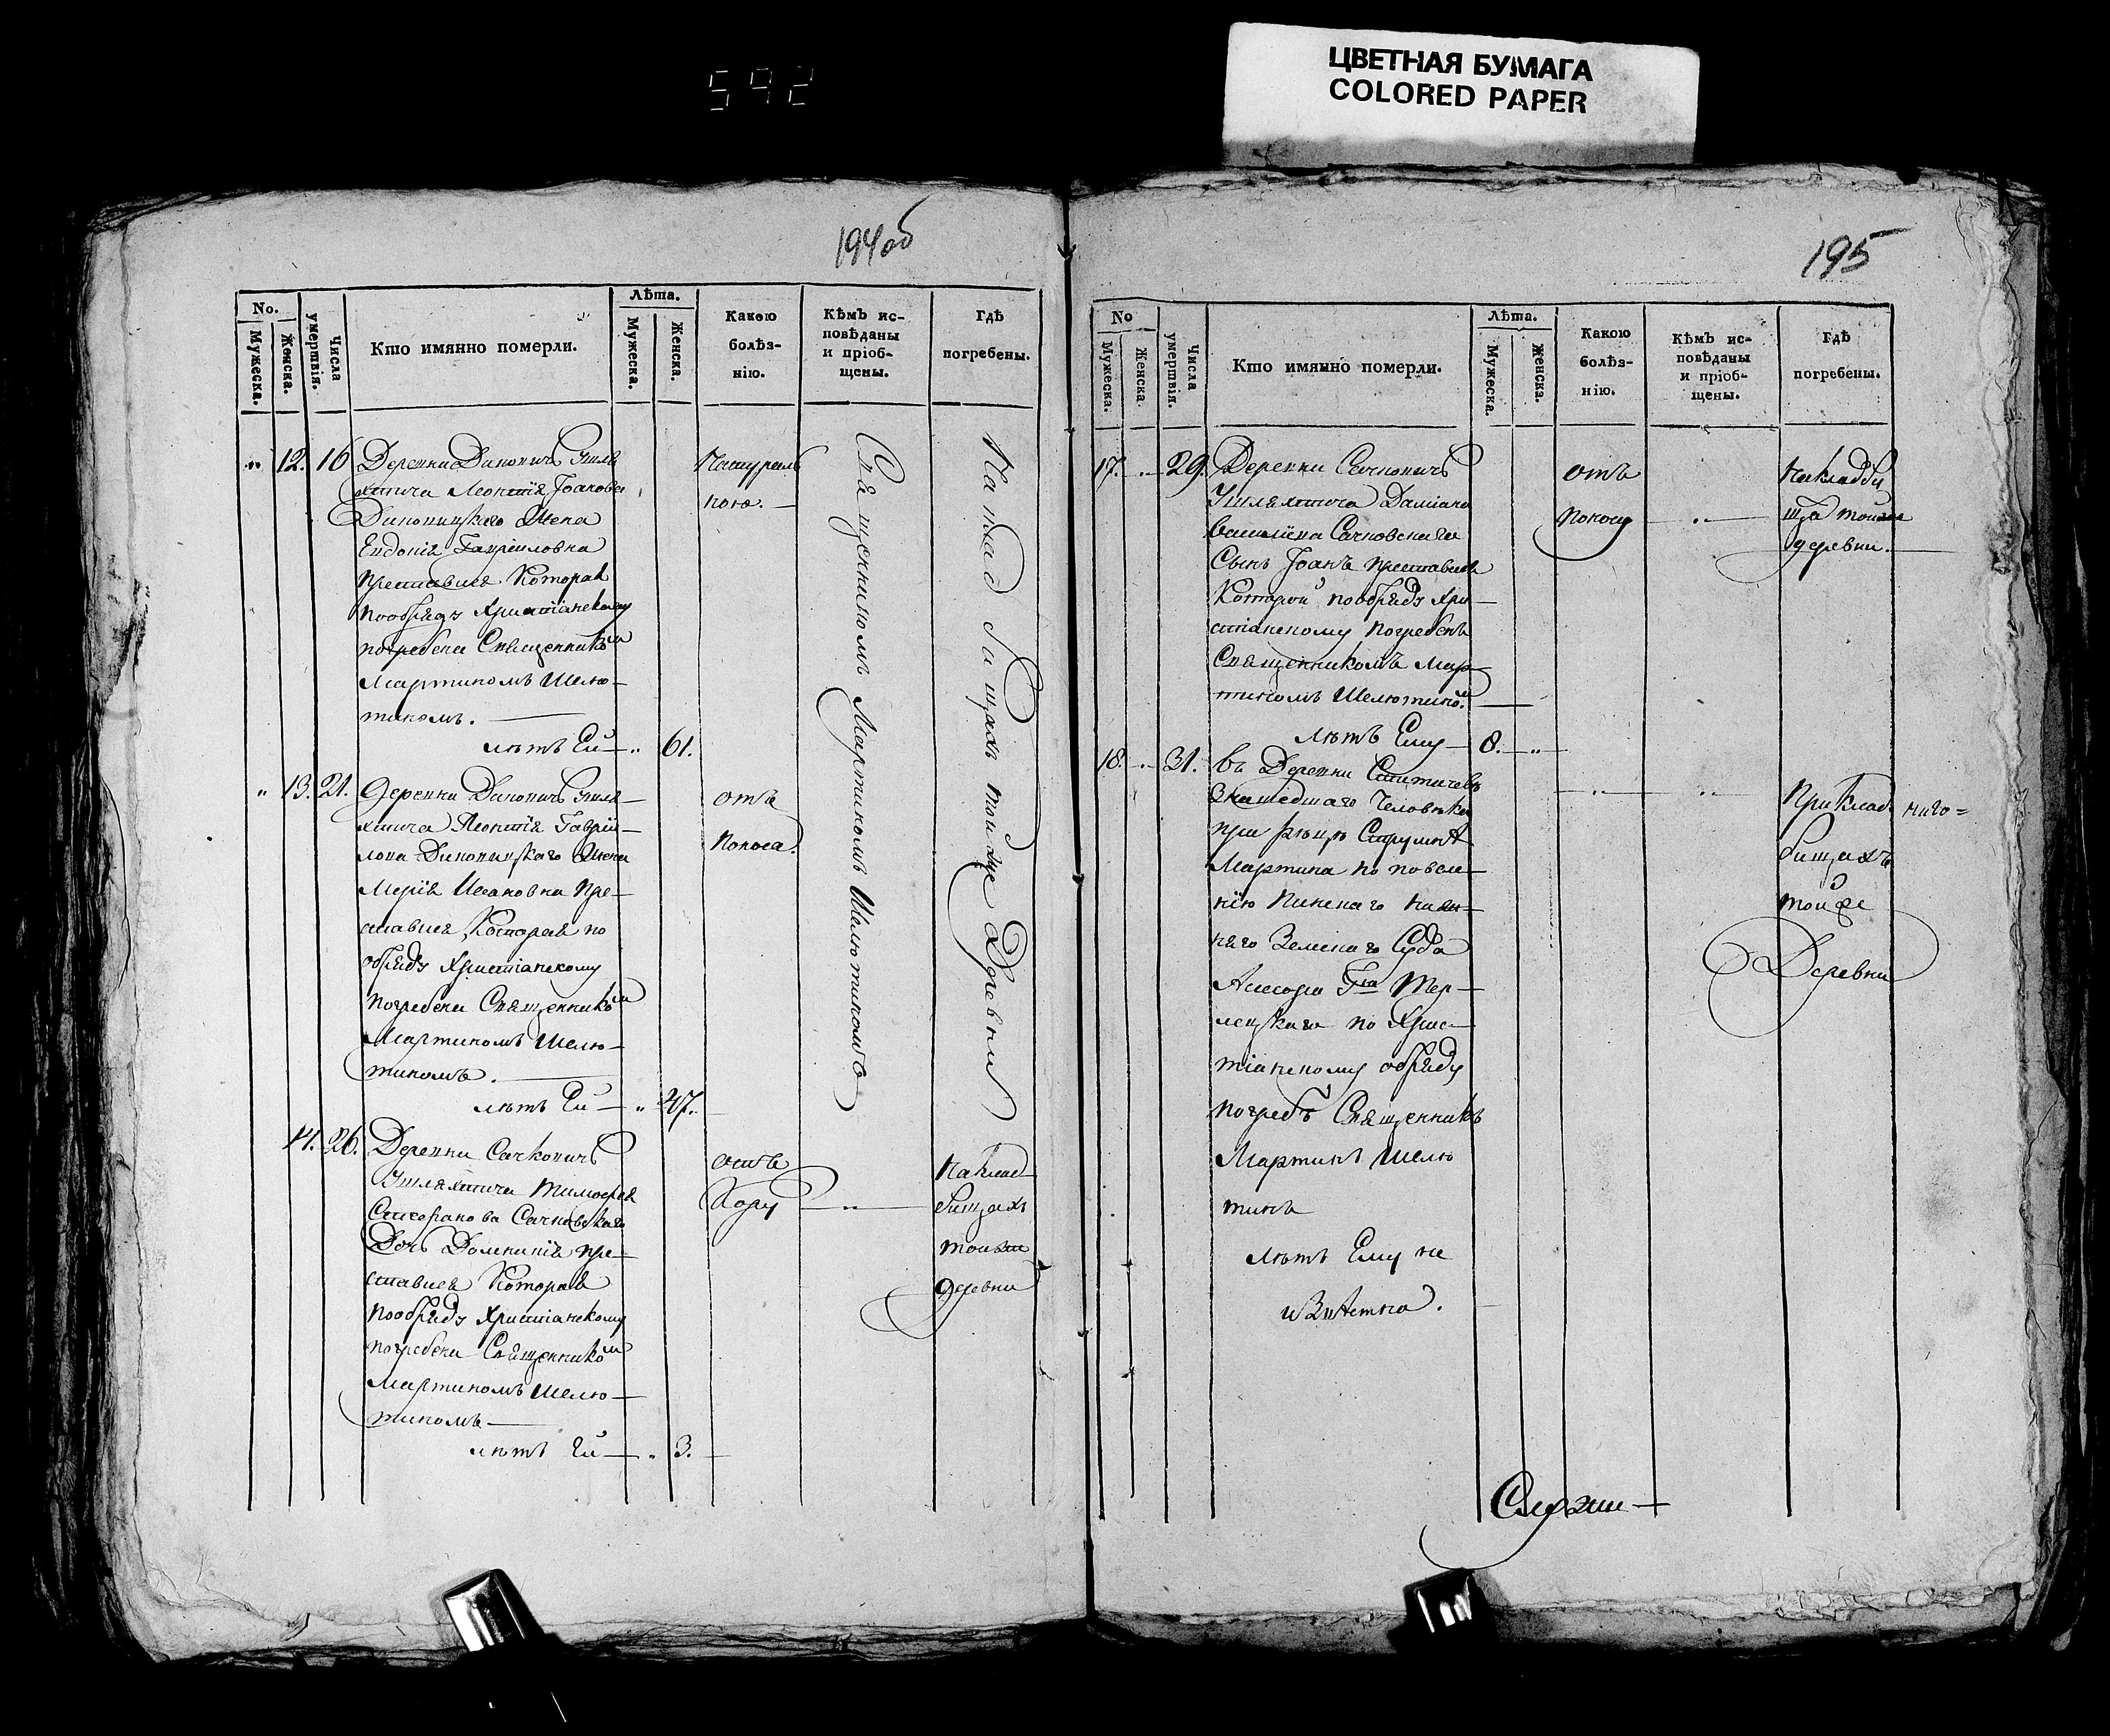 592
ЦВЕТНАЯ БУМАГА
COLORED PAPER
194об
No.
Мужеска.
Женска.
Числа умертвія.
Кто имянно померли.
Лѣта.
Мужеска.
Женска.
Какою болѣз-
нію.
Кѣмъ ис-
повѣданы
и пріоб-
щены.
Гдѣ
погребены.
12. 16 Деревни Диновичъ Шля
хтича Леонтія Іоанова
Диновицкаго Жена
Евдокія Гавріиловна
преставися. Которая
пообряду Християнскому
погребена Священником
Мартиномъ Шелю-
тиномъ.
лѣтъ Ей 61.
Натураль
ною.
Священникомъ Мартиномъ Шелютиномъ
На кладбищахъ той же Деревни
13. 21. Деревни Диновичъ Шля-
хтича Леонтія Гаврій-
лова Диновицкаго Жена
Марія Исаковна пре-
ставися, Которая по
обряду Християнскому
погребена Священником
Мартиномъ Шелю-
тиномъ.
лѣтъ Ей 47.
отъ
поноса.
14. 26. Деревни Сачковичъ
Шляхтича Тимофея
Сачковскаго
Дочь Доминикія пре-
ставися Которая
пообряду Християнскому
погребена Священником
Мартиномъ Шелю-
тиномъ
лѣтъ Ей 3.
отъ
Кору
На клад-
бищахъ
тойже
деревни
195
No
Мужеска.
Женска.
Числа умертвія.
Кто имянно померли.
Лѣта.
Мужеска.
Женска.
Какою
болѣз-
нію.
Кѣмъ ис-
повѣданы
и пріоб-
щены.
Гдѣ
погребены.
17. 29. Деревни Сачковичъ
Шляхтича Даміана
Василіева Сачковскаго
Сынъ Іоанъ преставися
Которой пообряду Хри-
стіанскому погребенъ
Священникомъ Мар-
тиномъ Шелютином.
лѣтъ Ему 8.
отъ
поносу
На кладби
ща тойже
деревни.
18. 31. въ Деревни
Зашедшаго Человѣка
при рѣцѣ Струмѣ
Мартина по повеле-
нію Пинскаго ниж-
няго Земскаго Суда
по Хрис-
тіанскому обряду
погребъ Священникъ
Мартинъ Шелю
тинъ
лѣтъ Ему не
извѣстна.
При клад-
бищахъ
той же
Деревни
Служи